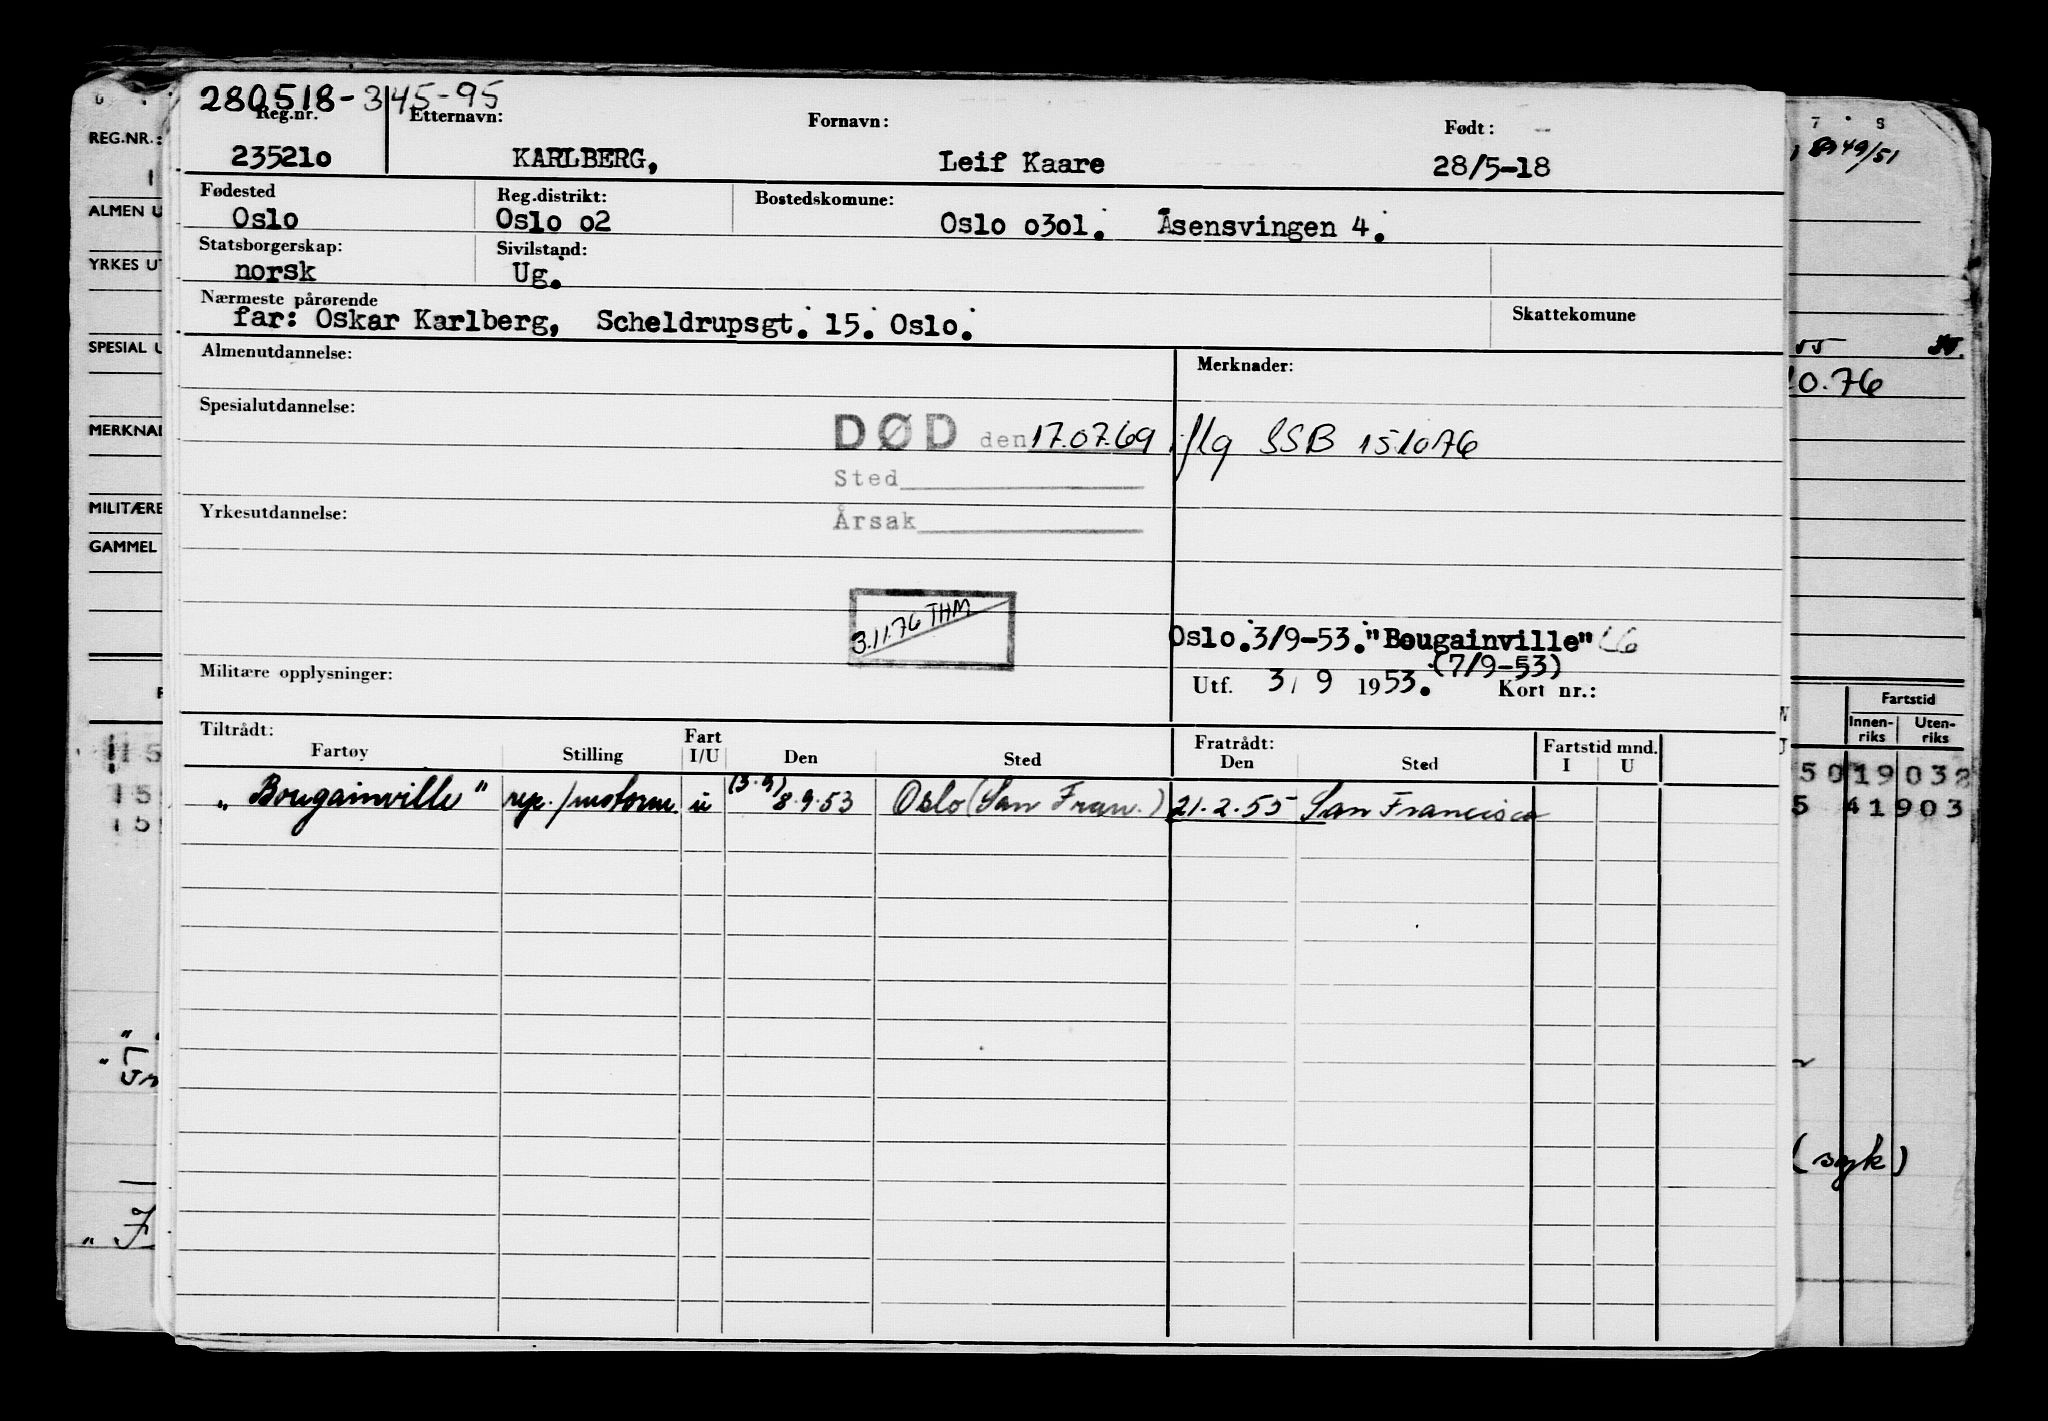 280518-345-95
Reg.nr. Etternavn: Fornavn: Født:
235210 KARLBERG, Leif Kaare 28/5-18
Fødested Reg.distrikt: Bostedskomune:
Oslo Oslo o2 Oslo o3ol. Åsensvingen 4.
Statsborgerskap: Sivilstand:
norsk Ug.
Nærmeste pårørende Skattekomune
far: Oskar Karlberg, Scheldrupsgt. 15. Oslo.
Almenutdannelse: Merknader:
Spesialutdannelse:
DØD den 17.07.69 iflg SSB 151076
Sted
Yrkesutdannelse: Årsak
3.11.76 THM
Oslo.3/9-53. "Bougainville"
(7/9-53)
Militære opplysninger: Utf. 3/9 1953. Kort nr.:
Tiltrådt: Fart Fratrådt: Fartstid mnd.
Fartøy Stilling I/U Den Sted Den Sted I U
(3.9)
"Bougainville" rep./motorm. u 8.9.53 Oslo (San Fran.) 21.2.55 San Francisco
REG.NR.:
ALMEN U
YRKES UT
SPESIAL U
MERKNAD
MILITÆRE
GAMMEL
7 8
49/51
10.76
Fartstid
Innen-riks Uten-riks
5019032
5 41903
(syk)